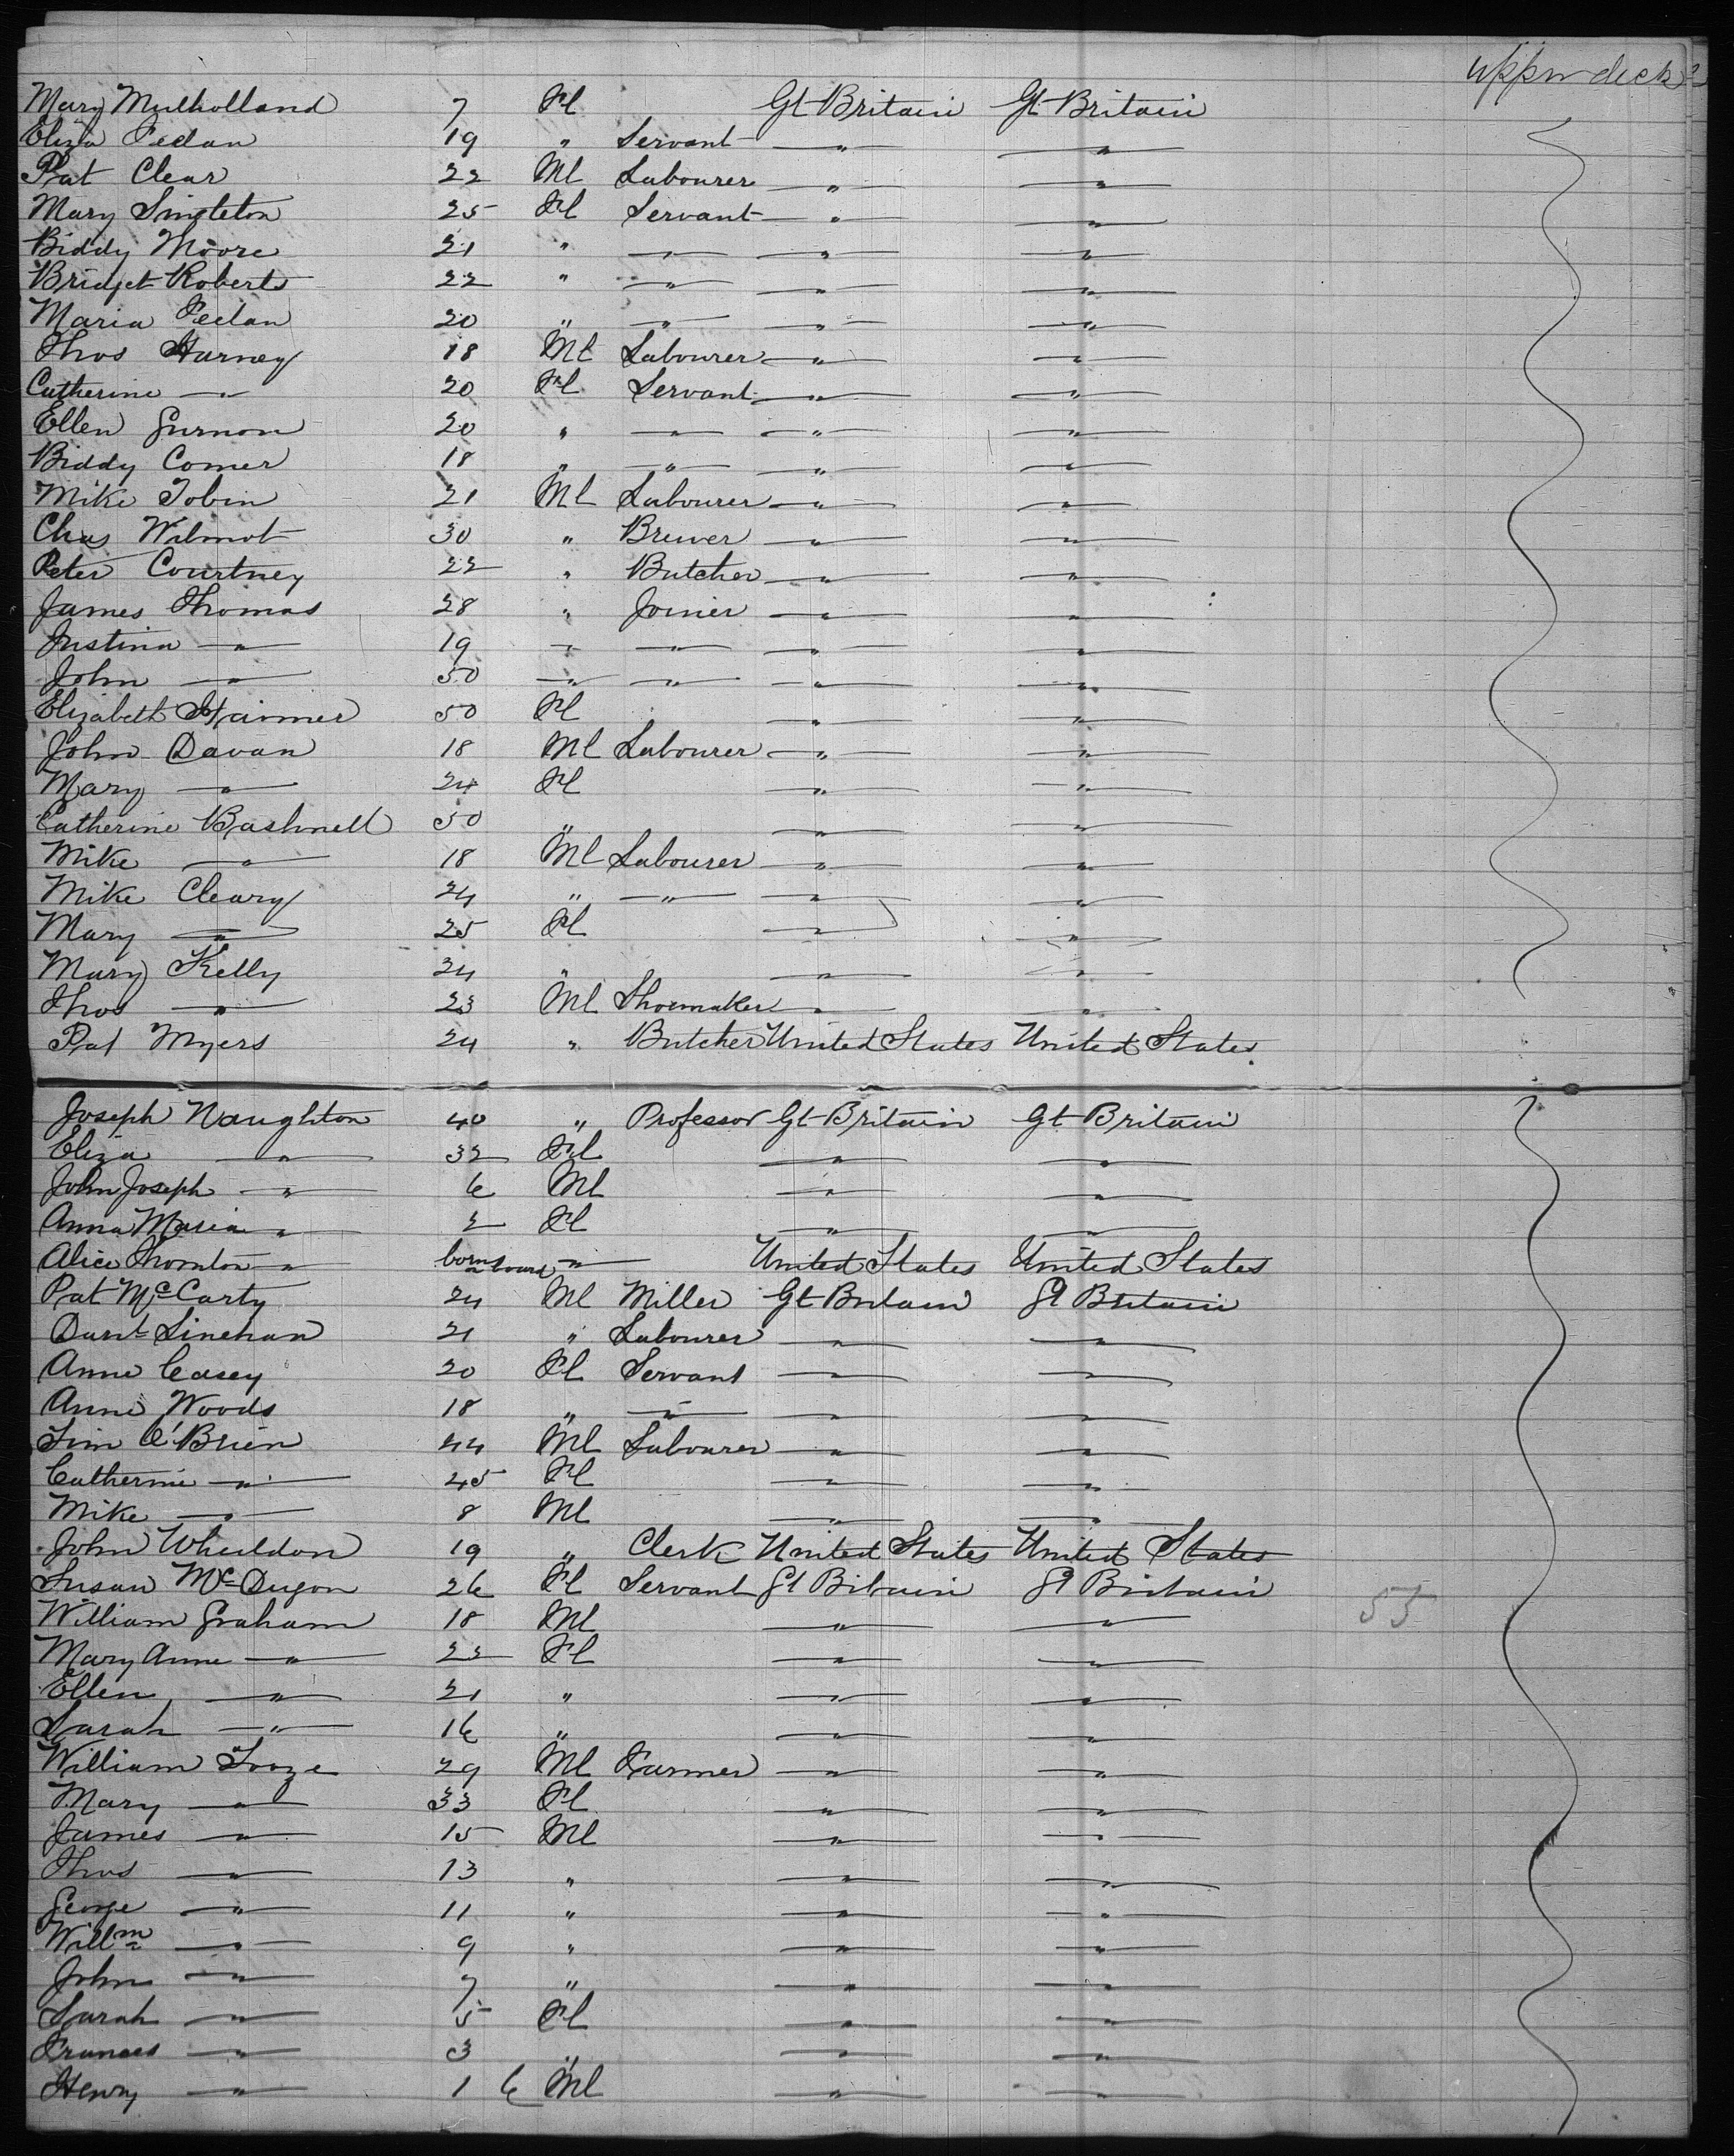 upper deck
Mary Mulholland 7 Fl Gt Britain Gt Britain
Eliza Fedan 19 " Servant " "
Pat Clear 22 Ml Labourer " "
Mary Singleton 25 Fl Servant " "
Biddy Moore 21 " " " "
Bridget Roberts 22 " " " "
Maria Fedan 20 " " " "
Thos Harney 18 Ml Labourer " "
Catherine " 20 Fl Servant " "
Ellen Gurnon 20 " " " "
Biddy Comer 18 " " " "
Mike Tobin 21 Ml Labourer " "
Chas Wilmot 30 " Brewer " "
Peter Courtney 22 " Butcher " "
James Thomas 28 " Joiner " "
Justina " 19 " " " "
John " 50 " " " "
Elizabeth 50 Fl " "
John Davan 18 Ml Labourer " "
Mary " 24 Fl " "
Catherine Bashnell 50 " " "
Mike " 18 Ml Labourer " "
Mike Cleary 24 " " " "
Mary " 25 Fl " "
Mary Kelly 24 " " "
Thos " 23 Ml Shoemaker " "
Pat Myers 24 " Butcher United States United States
Joseph Naughton 40 " Professor Gt Britain Gt Britain
Eliza " 32 Fl " "
John Joseph " 6 Ml " "
Anna Maria " 2 Fl " "
Alice Thornton " born on board " United States United States
Pat McCarty 24 Ml Miller Gt Britain Gt Britain
Danl Linehan 21 " Labourer " "
Anne Casey 20 Fl Servant " "
Anne Woods 18 " " " "
Tim O'Brien 44 Ml Labourer " "
Catherine " 45 Fl " "
Mike " 8 Ml " "
John Wheeldon 19 " Clerk United States United States
Susan McDugon 26 Fl Servant Gt Britain Gt Britain
William Graham 18 Ml " " 55
Mary Anne " 22 Fl " "
Ellen " 21 " " "
Sarah " 16 " " "
William Tooze 29 Ml Farmer " "
Mary " 33 Fl " "
James " 15 Ml " "
Thos " 13 " " "
George " 11 " " "
Willm " 9 " " "
John " 7 " " "
Sarah " 5 Fl " "
Frances " 3 " " "
Henry " 1 6 Ml " "